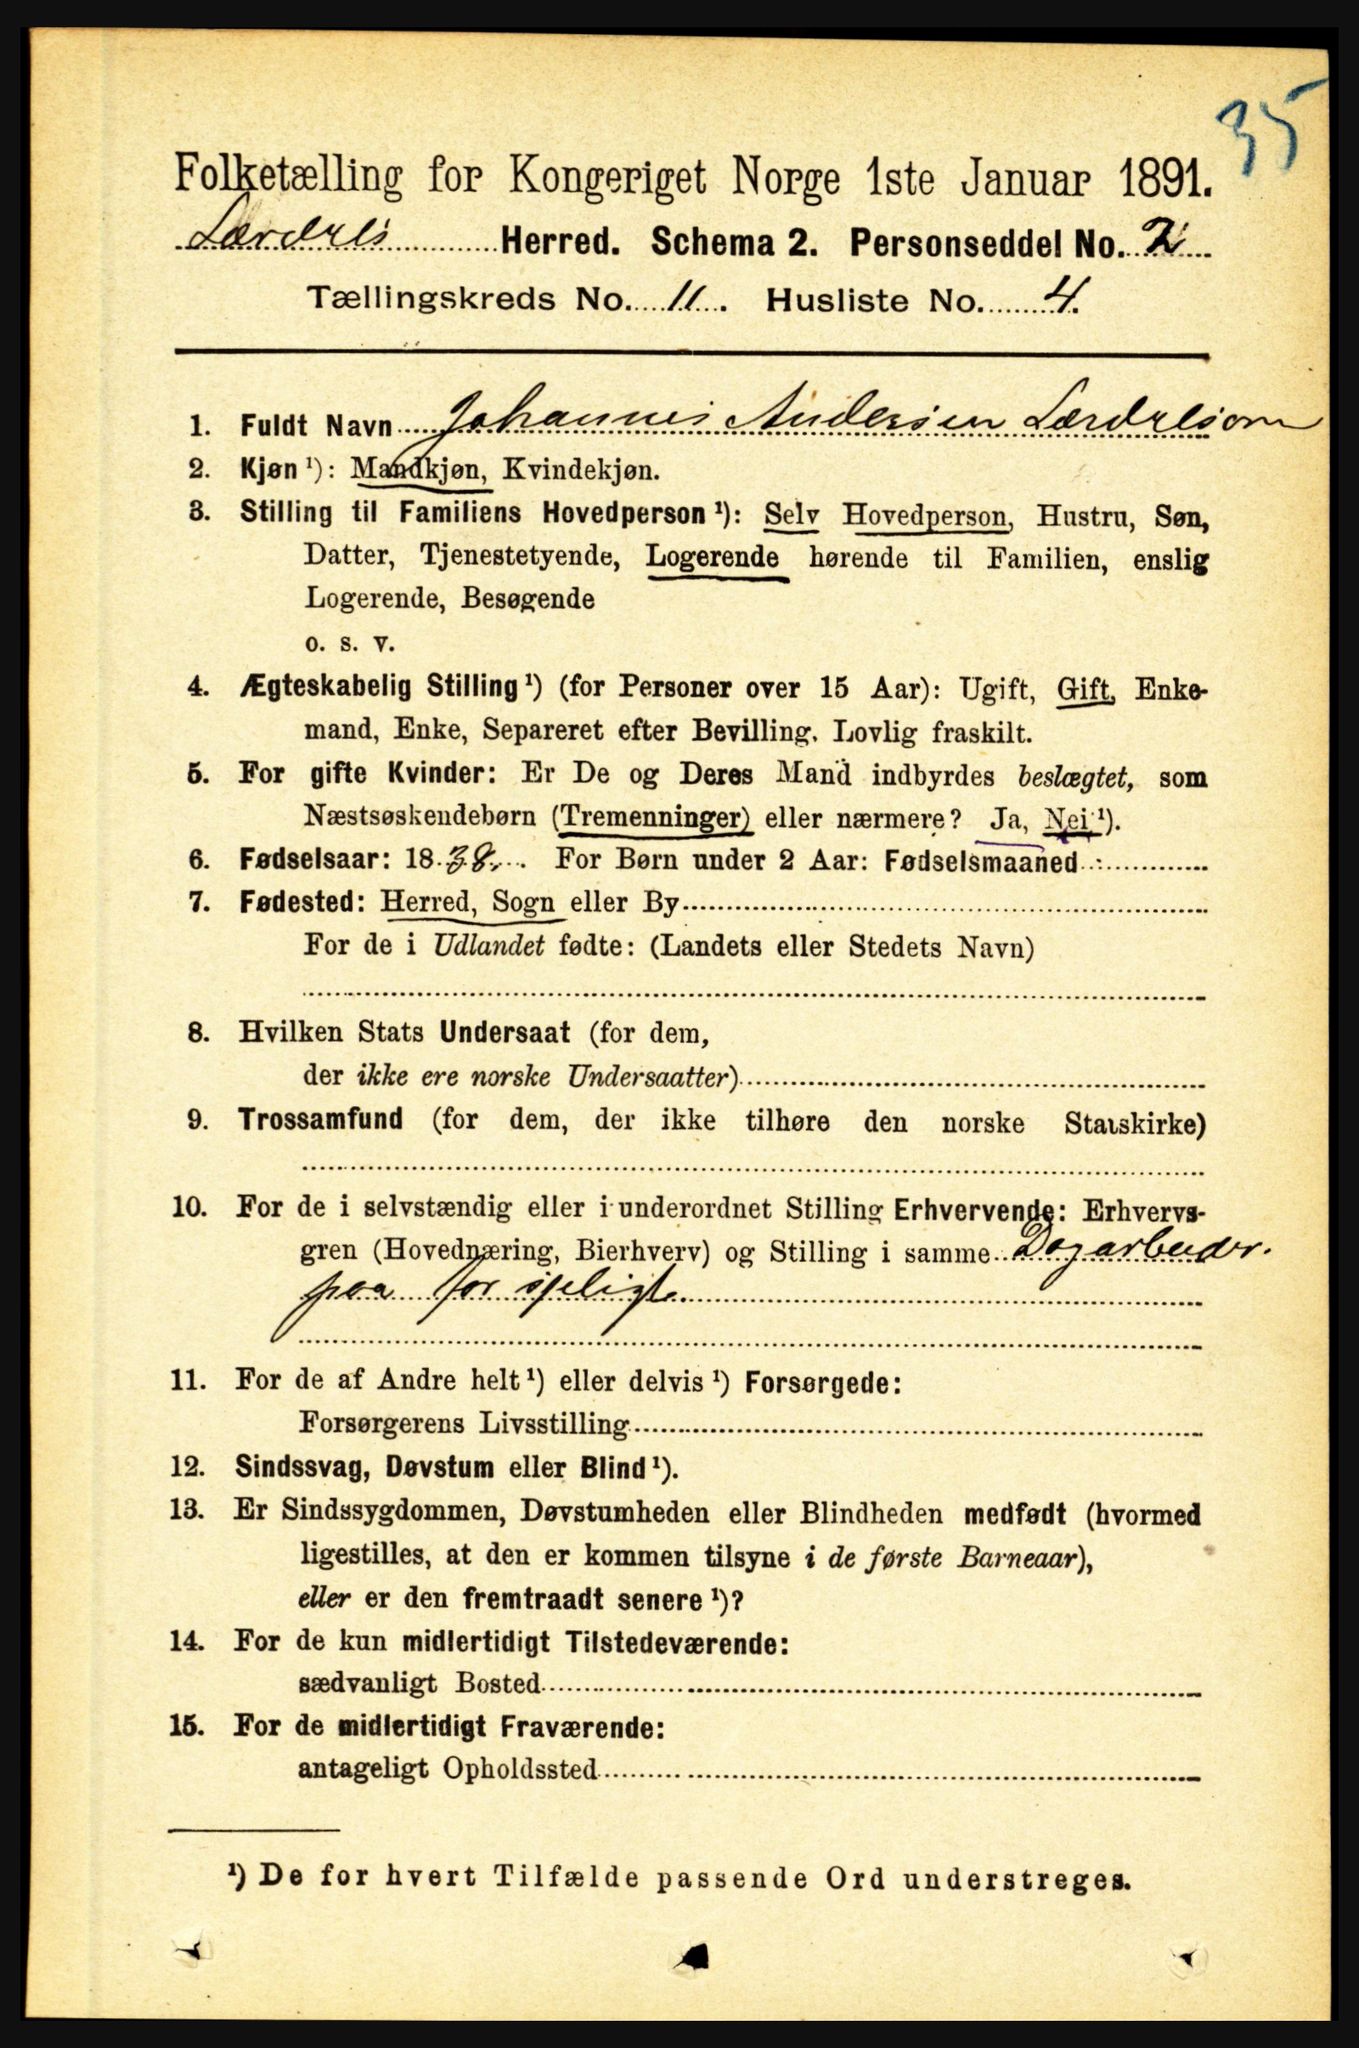 35
Folketælling for Kongeriget Norge 1ste Januar 1891.
Lærdals Herred. Schema 2. Personseddel No. 2
Tællingskreds No. 11. Husliste No. 4.
1. Fuldt Navn Johannes Andersen Lærdalsørn
2. Kjøn ¹): Mandkjøn, Kvindekjøn.
3. Stilling til Familiens Hovedperson ¹): Selv Hovedperson, Hustru, Søn,
Datter, Tjenestetyende, Logerende hørende til Familien, enslig
Logerende, Besøgende
o. s. v.
4. Ægteskabelig Stilling ¹) (for Personer over 15 Aar): Ugift, Gift, Enke-
mand, Enke, Separeret efter Bevilling. Lovlig fraskilt.
5. For gifte Kvinder: Er De og Deres Mand indbyrdes beslægtet, som
Næstsøskendebørn (Tremenninger) eller nærmere? Ja, Nei ¹).
6. Fødselsaar: 1838. For Børn under 2 Aar: Fødselsmaaned
7. Fødested: Herred, Sogn eller By
For de i Udlandet fødte: (Landets eller Stedets Navn)
8. Hvilken Stats Undersaat (for dem,
der ikke ere norske Undersaatter)
9. Trossamfund (for dem, der ikke tilhøre den norske Statskirke)
10. For de i selvstændig eller i underordnet Stilling Erhvervende: Erhvervs-
gren (Hovednæring, Bierhverv) og Stilling i samme Dagarbeider.
paa forskjeligt.
11. For de af Andre helt ¹) eller delvis ¹) Forsørgede:
Forsørgerens Livsstilling
12. Sindssvag, Døvstum eller Blind ¹).
13. Er Sindssygdommen, Døvstumheden eller Blindheden medfødt (hvormed
ligestilles, at den er kommen tilsyne i de første Barneaar),
eller er den fremtraadt senere ¹)?
14. For de kun midlertidigt Tilstedeværende:
sædvanligt Bosted
15. For de midlertidigt Fraværende:
antageligt Opholdssted
¹) De for hvert Tilfælde passende Ord understreges.